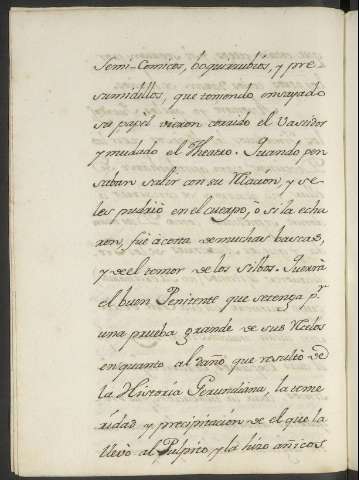 Semi-Comicos, boquirrubios, y pre
sumidillos, que teniendo ensayado
su papel vieron corrido el Vastidor
y mudado el Theatro. Quando pen
saban salir con su Rlación, y se
les pudrió en el cuerpo, ò si la echa
ron, fué à costa de muchas bascas,
y de el temor de los Silbos. Querrà
el buen Penitente que se tenga p.r
una prueba grande de sus Rcelos
en quanto al daño, que resultò de
la Historia Gerundiana, la teme
ridad y precipitación de el que la
llevò al Pulpito, y la hizo añicos.